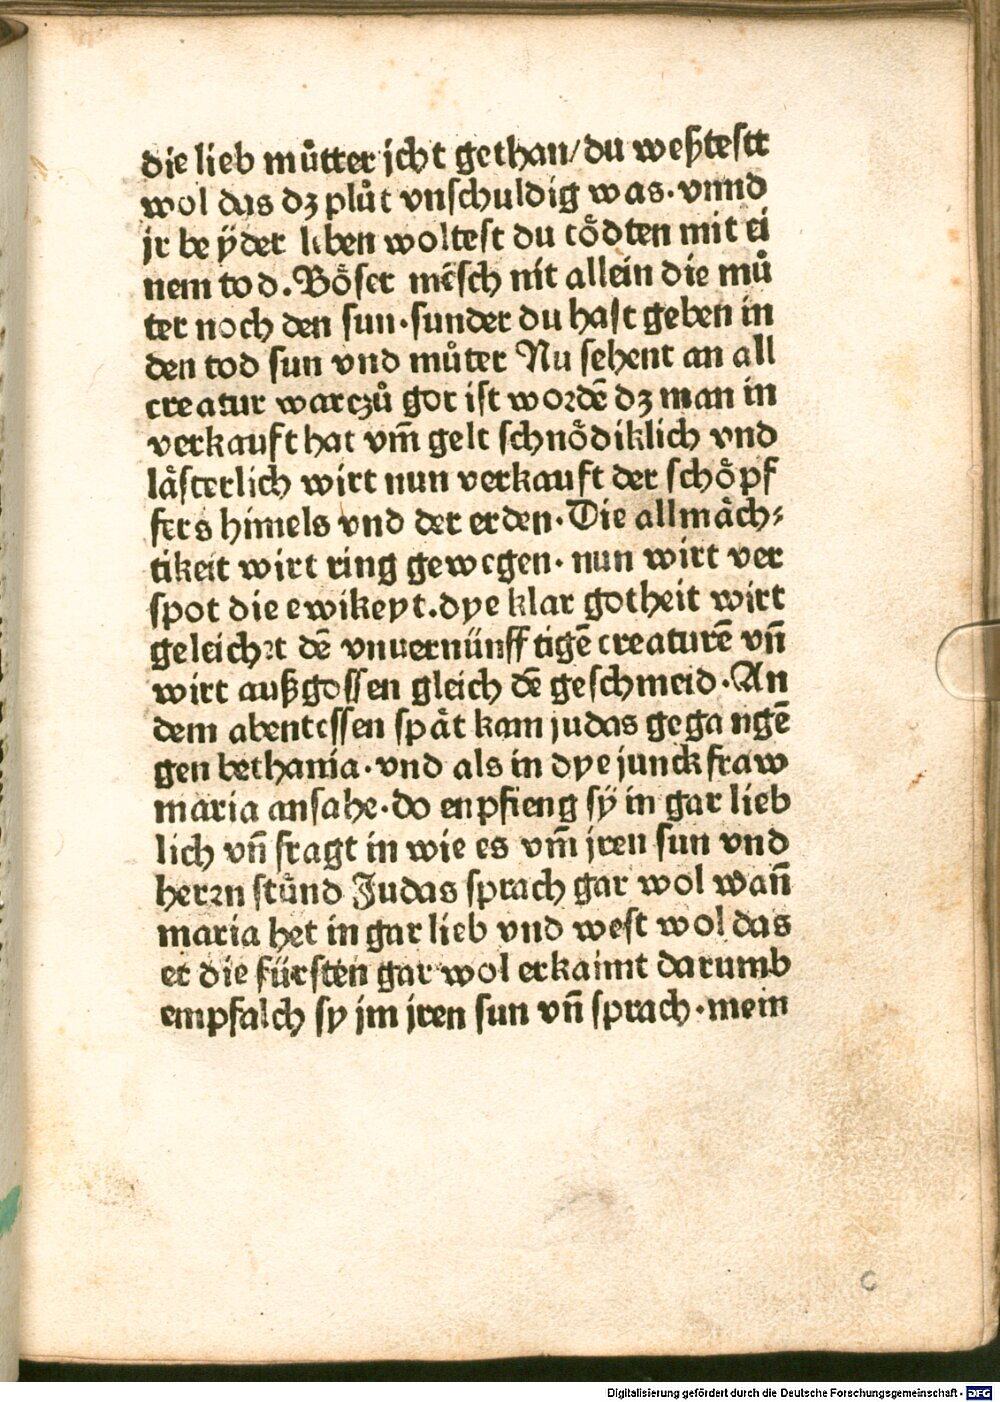 die lieb můtter jcht gethan/du weßtestt
wol das dꝫ plůt vnſchuldig was·vnnd
jr beÿder leben wolteſt du tȫdten mit ei
nem tod.Böſer mēſch nit allein die mů
ter noch den ſun·ſunder du haſt geben in
den tod ſun vnd můter Nu ſehent an all
creatur warczů got iſt wordē dꝫ man in
verkauft hat vm̄ gelt ſchnödiklich vnd
läſterlich wirt nun verkauft der ſchöpf
fers himels vnd der erden·Die allmäch⸗
tikeit wirt ring gewegen·nun wirt ver
ſpot die ewikeyt.dye klar gotheit wirt
geleichꝛt dē vnuernünfftigē creaturē vn̄
wirt außgoſſen gleich dē geſchmeid·An
dem abenteſſen ſpät kam judas gegangē
gen bethania·vnd als in dye junckfraw
maria anſahe·do enpfieng ſÿ in gar lieb
lich vn̄ fragt in wie es vm̄ jren ſun vnd
herꝛn ſtünd Judas ſprach gar wol wan̄
maria het in gar lieb vnd weſt wol das
er die fürſten gar wol erkannt darumb
empfalch ſy jm jren ſun vn̄ ſprach·mein
C
Digitalisierung gefördert durch die Deutsche Forschungsgemeinschaft - DFG